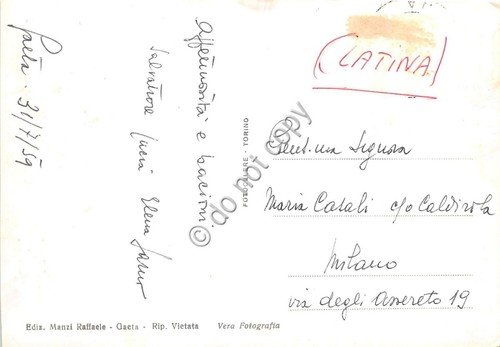 Gaeta. 31/7/59
Affettuosità e bacioni
Salvatore Lucia Elena
(LATINA)
Gent.ma Signora
Maria Casali c/o Caldirola
Milano
via degli Assereto 19
TORINO
© do not copy
Ediz. Manzi Raffaele - Gaeta - Rip. Vietata Vera Fotografia